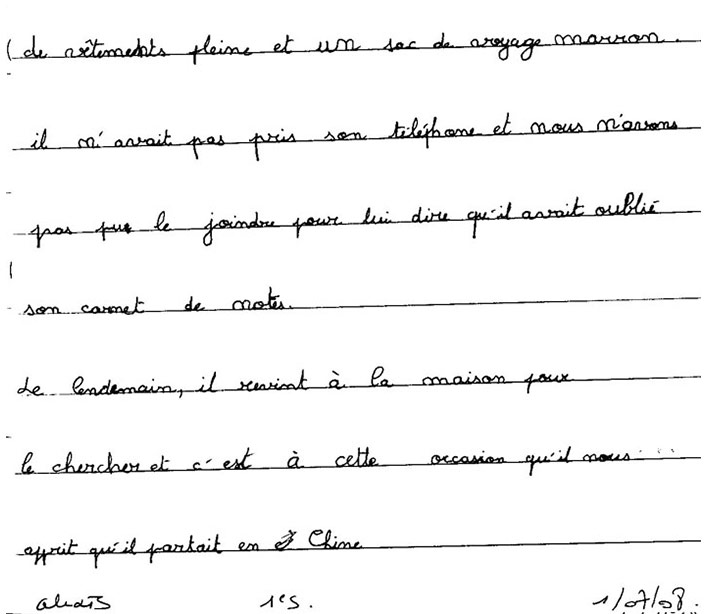 de vêtements pleine et un sac de voyage marron.
il n'avait pas pris son téléphone et nous n'avons
pas pu le joindre pour lui dire qu'il avait oublié
son carnet de notes.
Le lendemain, il revint à la maison pour
le chercher et c'est à cette occasion qu'il nous
apprit qu'il partait en Chine
1eS. 1/07/08.